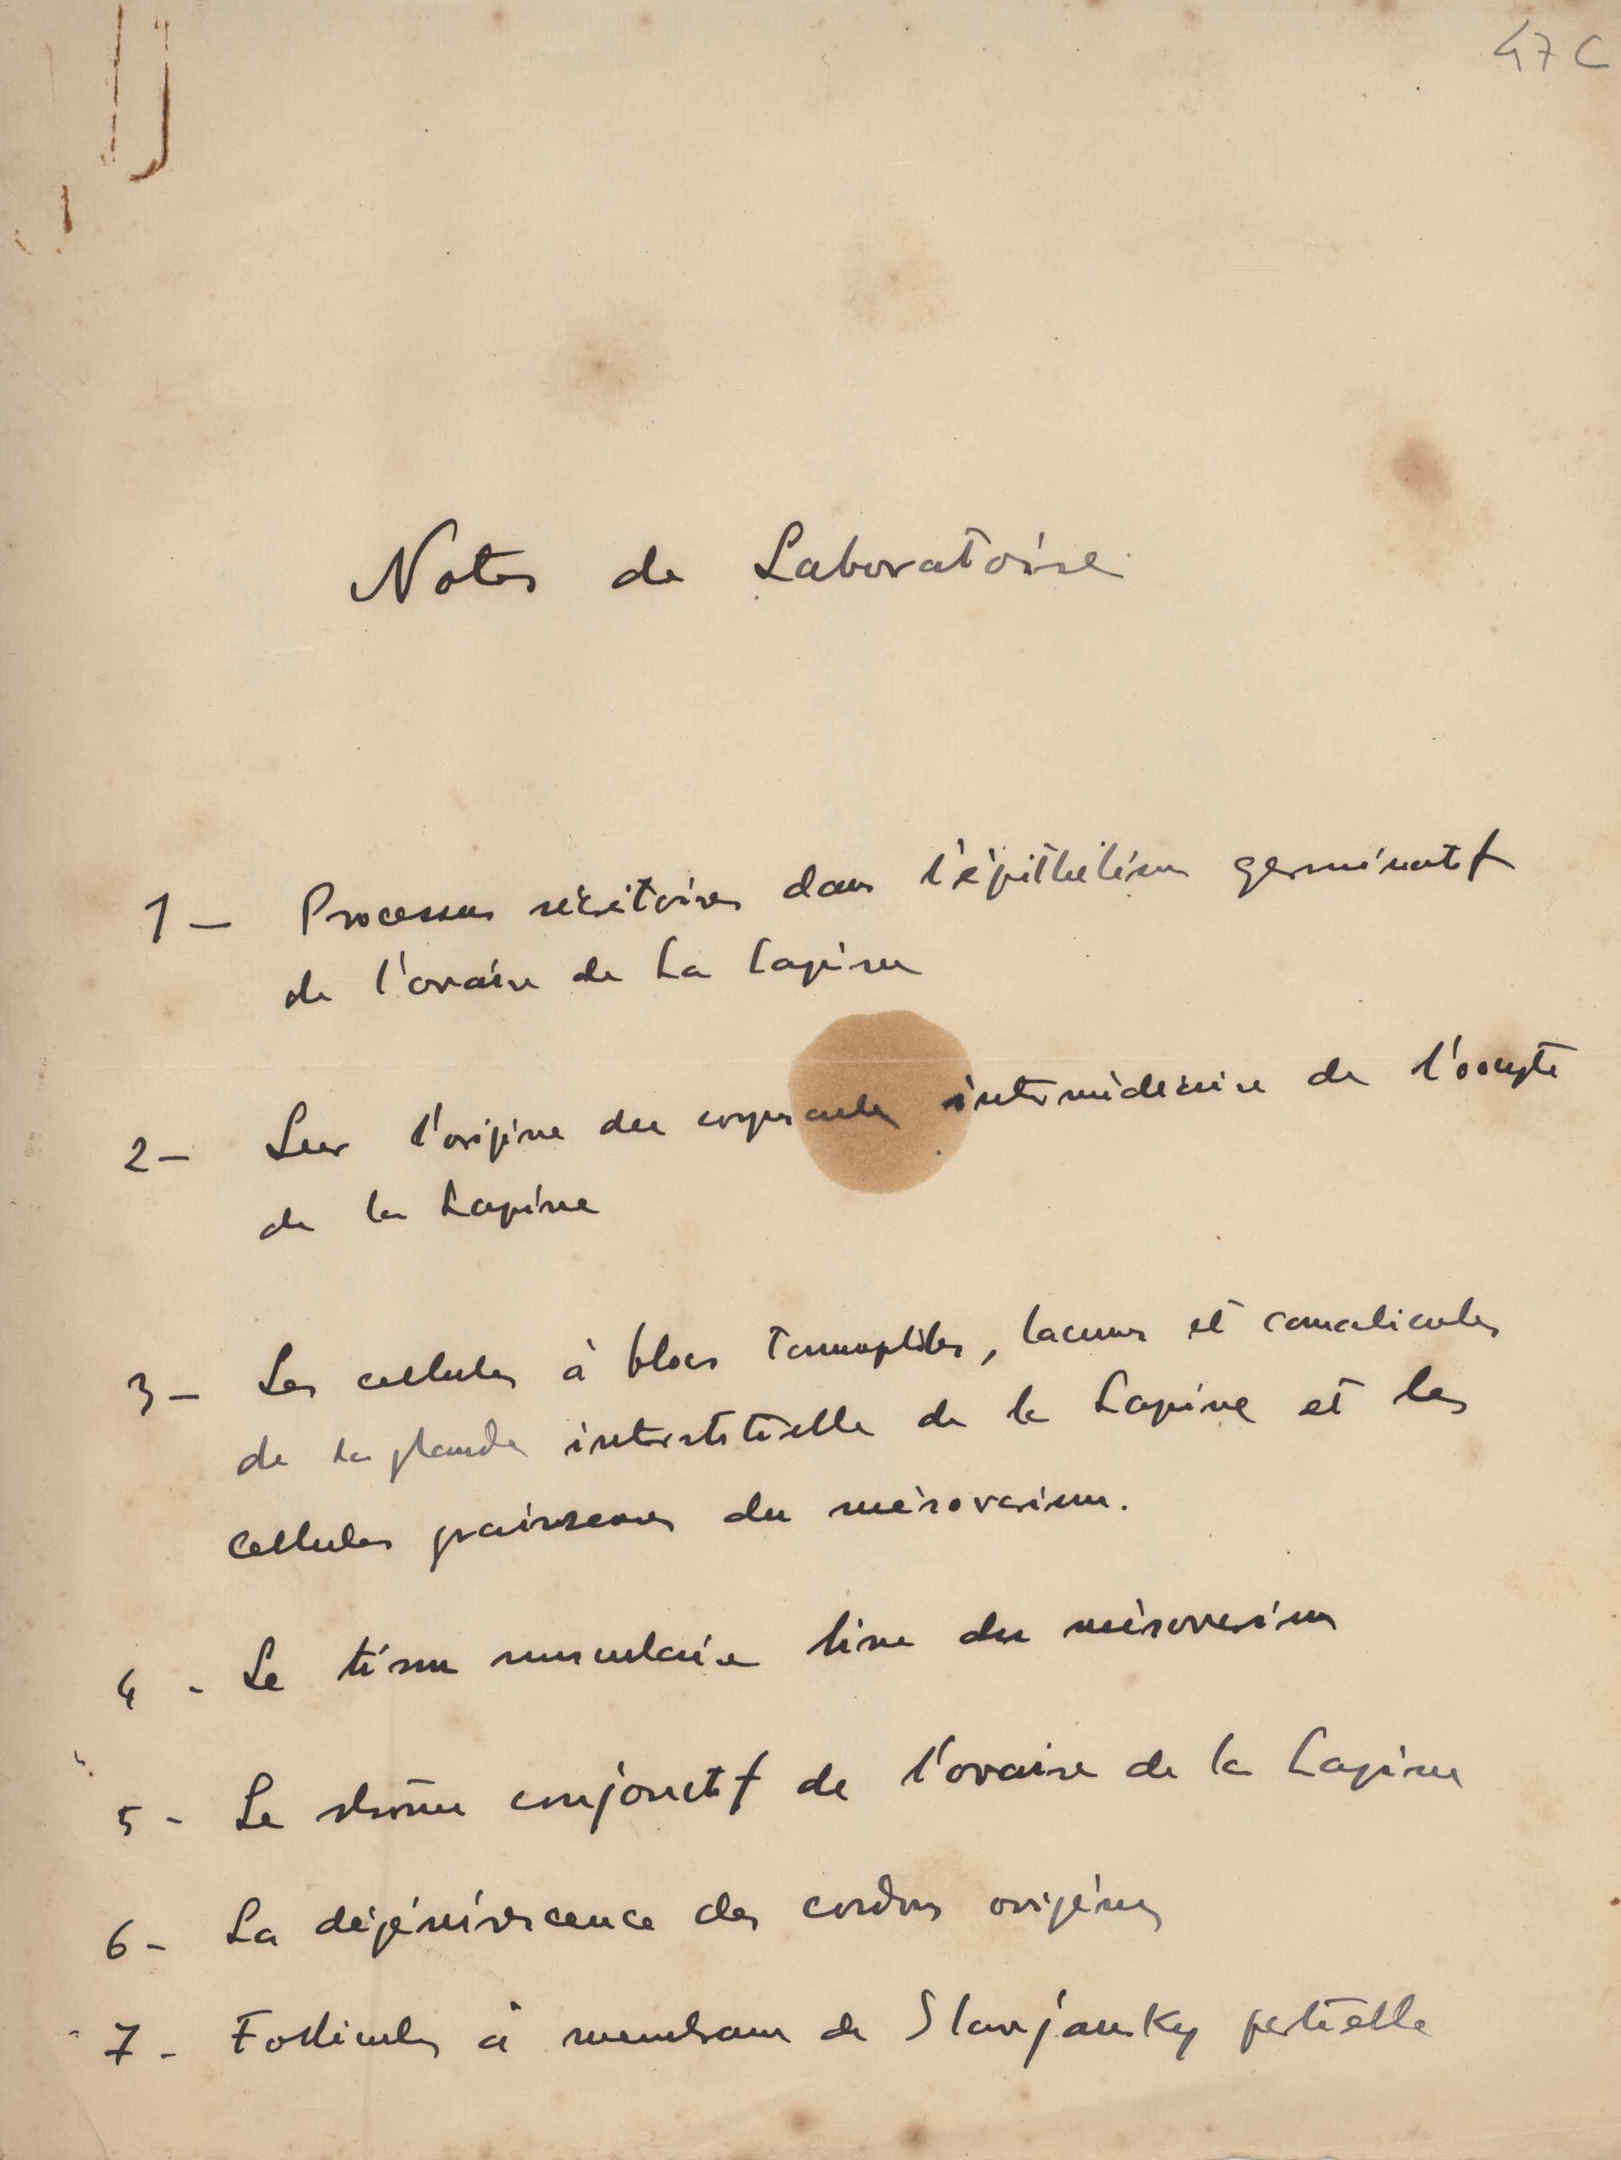 47 C
Notes de Laboratoire
1 - Processus sécrétoires dans l'épithélium germinatif
de l'ovaire de la Lapine
2 - Sur l'origine du corpuscule intermédiaire de l'oocyte
de la Lapine
3 - Les cellules à blocs tannophiles, lacunes et canalicules
de la glande interstitielle de la Lapine et les
cellules graisseuses du mésovarium.
4 - Le tissu musculaire lisse du mésovarium
5 - Le stroma conjonctif de l'ovaire de la Lapine
6 - La dégénérescence des cordons origènes
7 - Follicules à membrane de Slavjansky partielle